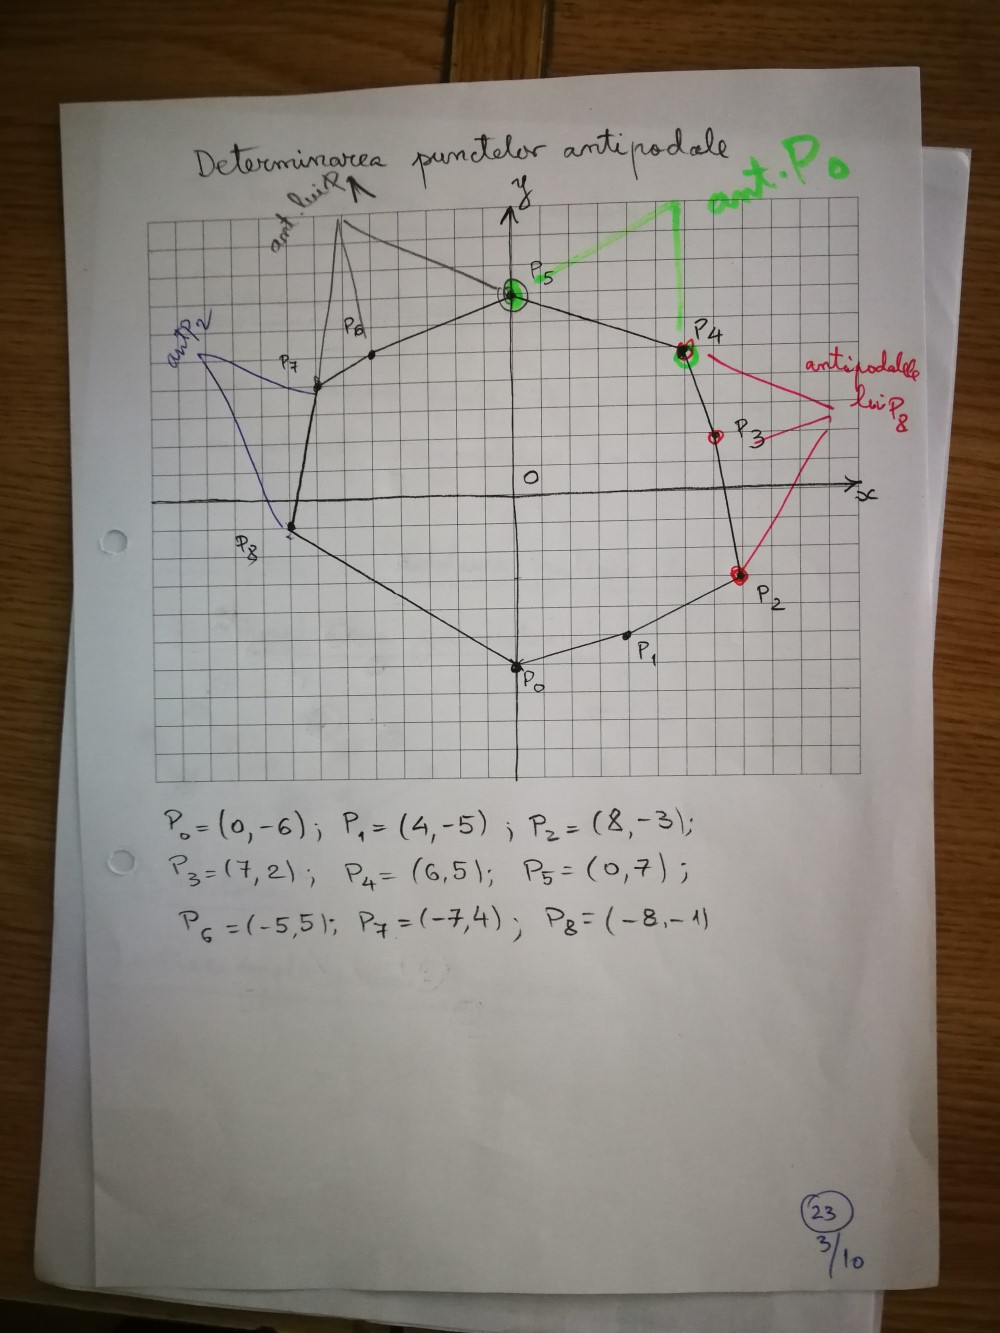 Determinarea punctelor antipodale
ant. lui P1
y
ant. P0
P5
antP2
P6
P7
P4
antipodalele
lui P8
P3
O
x
P8
P2
P1
P0
P0=(0,-6); P1=(4,-5); P2=(8,-3);
P3=(7,2); P4=(6,5); P5=(0,7);
P6=(-5,5); P7=(-7,4); P8=(-8,-1)
23
3/10